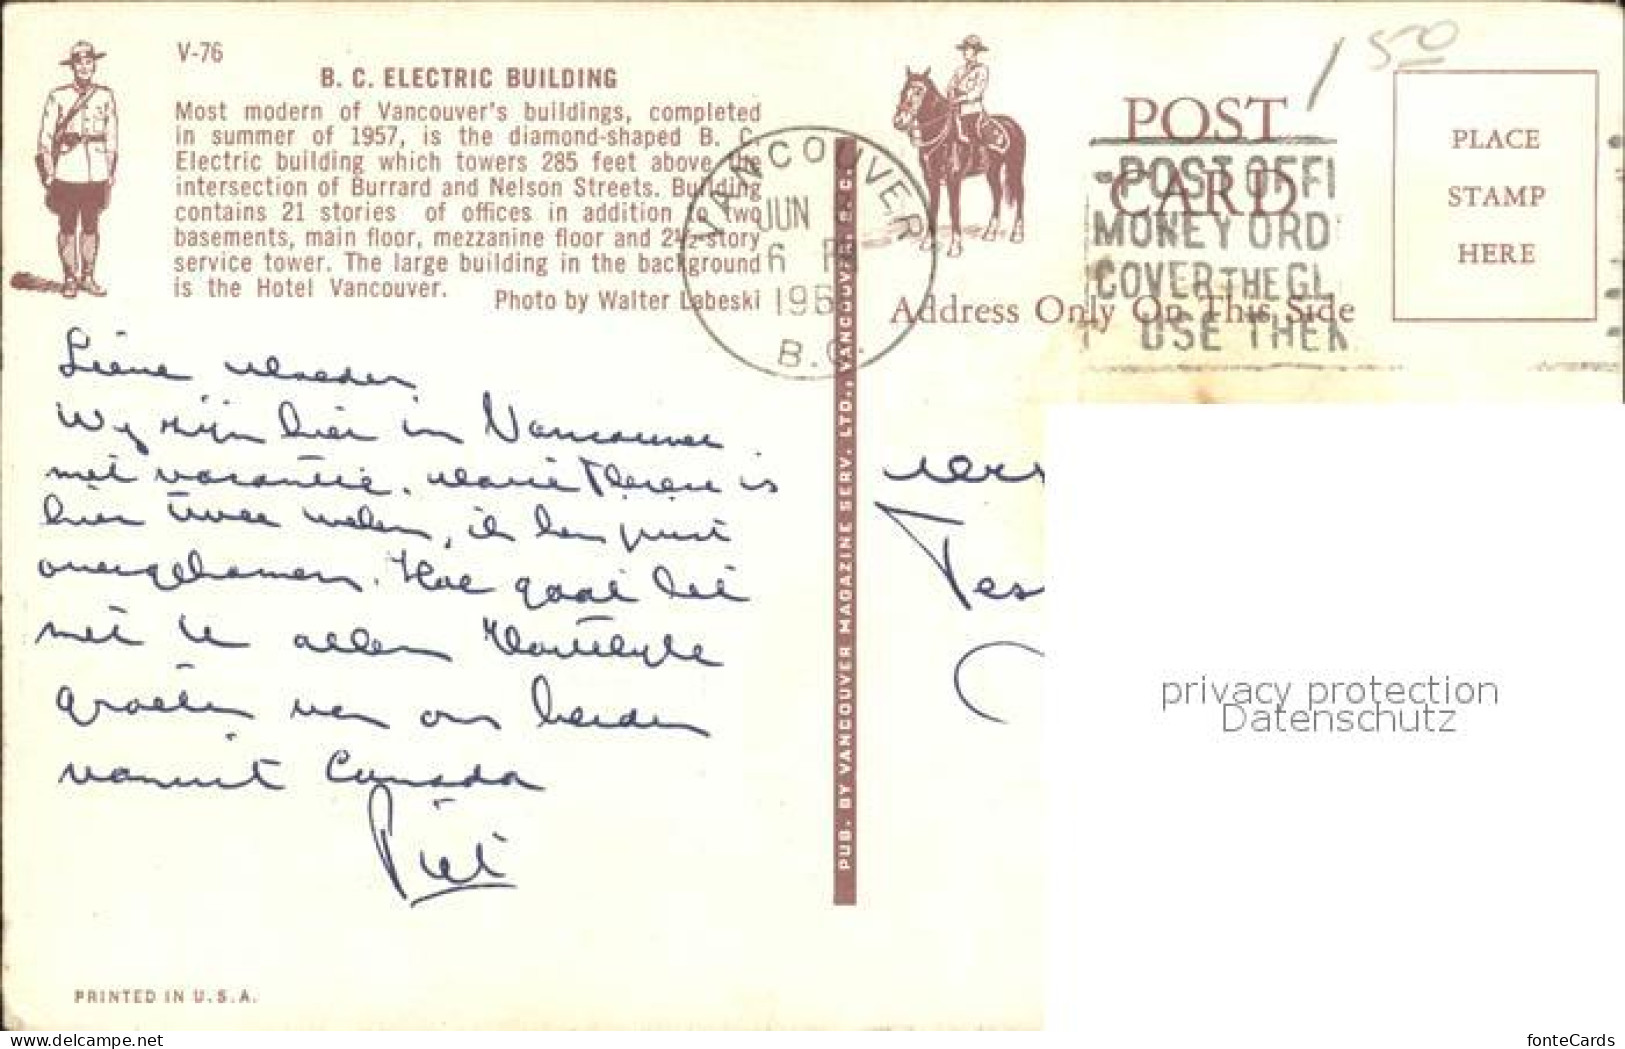 V-76
B. C. ELECTRIC BUILDING
Most modern of Vancouver's buildings, completed
in summer of 1957, is the diamond-shaped B. C.
Electric building which towers 285 feet above the
intersection of Burrard and Nelson Streets. Building
contains 21 stories of offices in addition to two
basements, main floor, mezzanine floor and 2½-story
service tower. The large building in the background
is the Hotel Vancouver.
Photo by Walter Labeski
VANCOUVER
JUN
6 P
196
B.C.
POST CARD
POST OFFI
MONEY ORD
COVER THE GL
USE THE
Address Only On This Side
PLACE
STAMP
HERE
1 50
Lieve Moeder
Wy zijn hier in Vancouver
met vacantie. Marie Therese is
hier twee weken, ik ben juist
overgekomen. Hoe gaat het
met U allen Hartelyke
groeten van ons beiden
vanuit Canada
Piet
PUB. BY VANCOUVER MAGAZINE SERV. LTD., VANCOUVER, B. C.
Tes
privacy protection
Datenschutz
PRINTED IN U.S.A.
delcampe.net
fonteCards